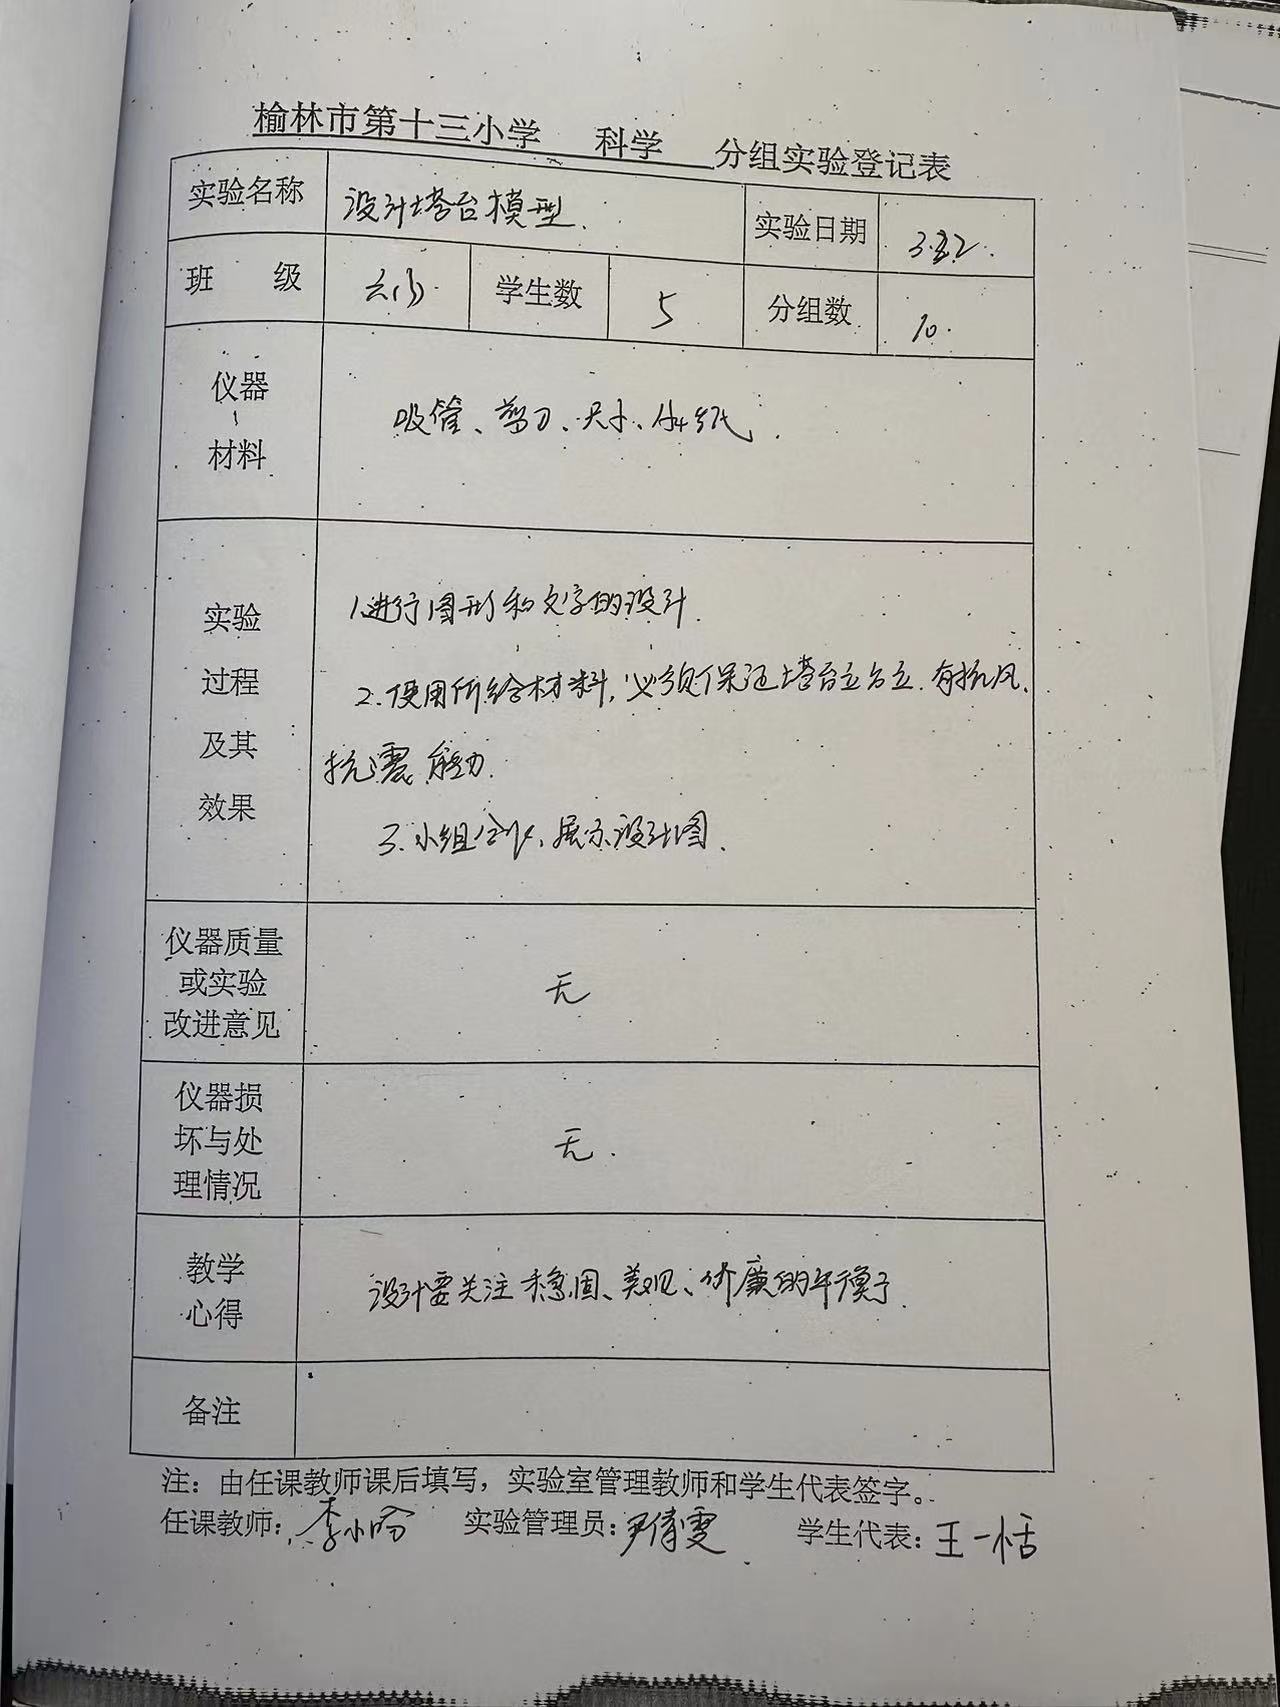 榆林市第十三小学 科学 分组实验登记表
实验名称 设计塔台模型. 实验日期
班 级 学生数 5 分组数 10.
仪器
、
材料
吸管、剪刀、尺子、A4纸.
实验
过程
及其
效果
1.进行图形和文字的设计.
2.使用所给材料,必须保证塔台立台立.有抗风、
抗震能力.
3.小组合作、展示设计图.
仪器质量
或实验
改进意见
无
仪器损
坏与处
理情况
无.
教学
心得
设计要关注稳固、美观、价廉的平衡.
备注
注:由任课教师课后填写,实验室管理教师和学生代表签字。
任课教师: 李小 实验管理员:尹倩雯 学生代表:王一恬